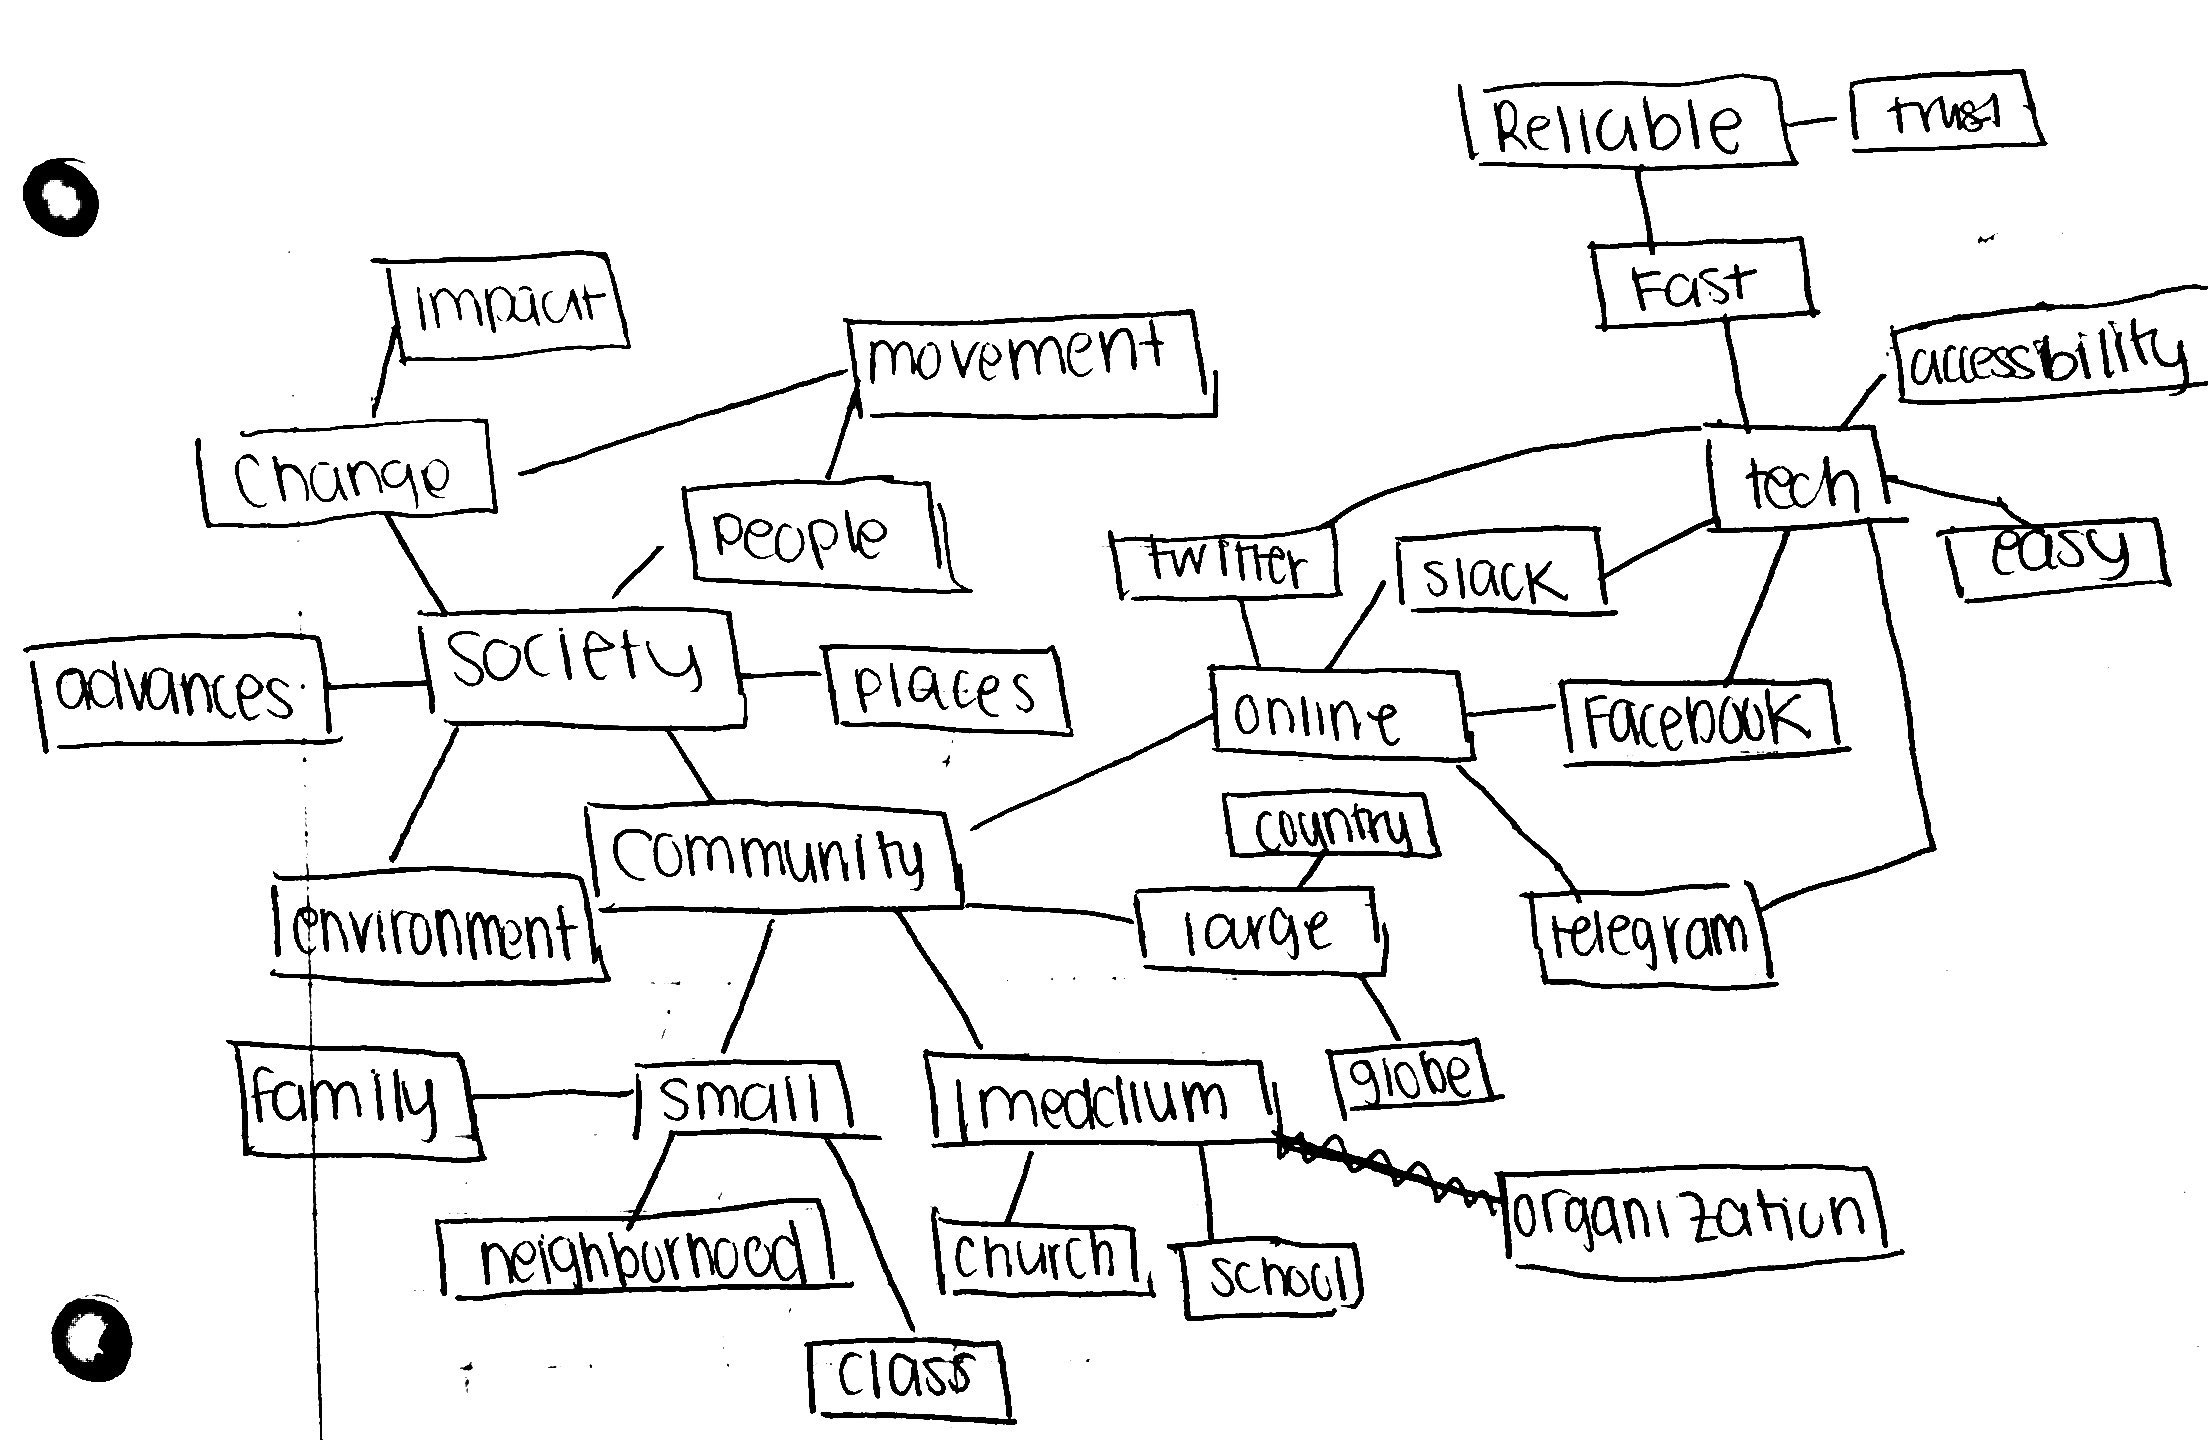 Reliable
trust
Fast
impact
accessibility
movement
change
tech
people
twitter
slack
easy
society
advances
places
online
Facebook
country
community
environment
large
telegram
family
small
medium
globe
organization
neighborhood
church
school
class